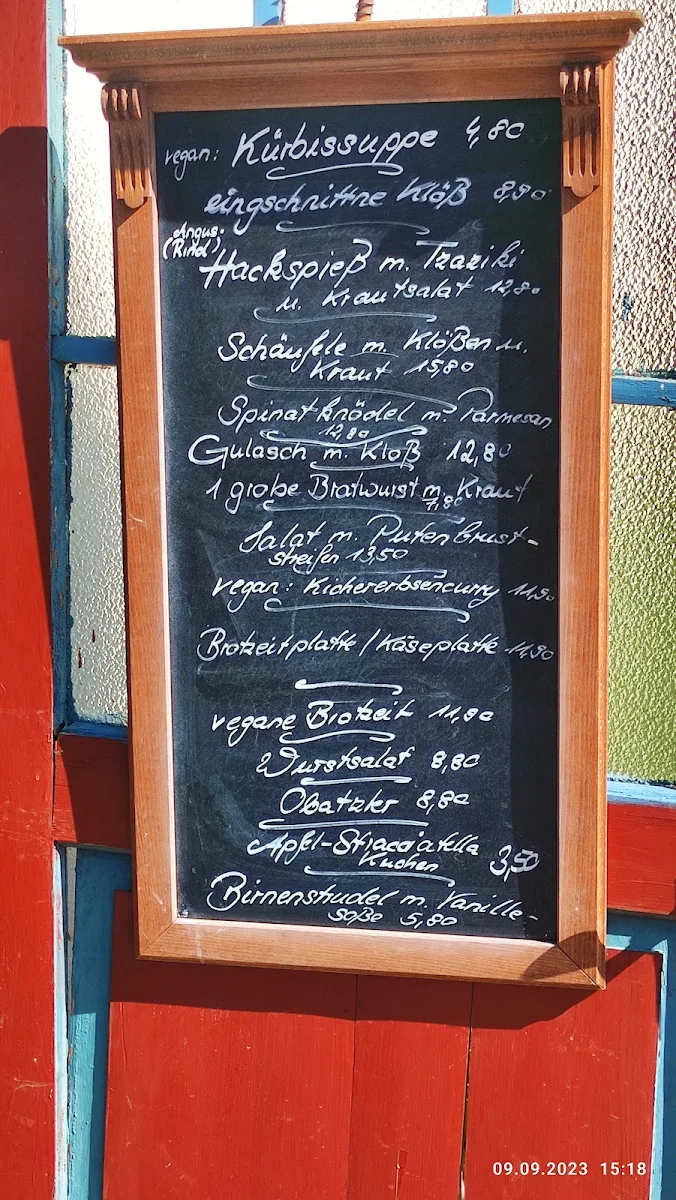 vegan: Kürbissuppe 4,80
eingschnittne Klöß 8,90
Angus-
(Rind)
Hackspieß m. Tzaziki
u. Krautsalat 12,80
Schäufele m. Klößen u.
Kraut 15,80
Spinatknödel m. Parmesan
12,80
Gulasch m. Kloß 12,80
1 grobe Bratwurst m. Kraut
7,80
Salat m. Putenbrust-
streifen 13,50
vegan: Kichererbsencurry 11,90
Brotzeitplatte / Käseplatte 11,90
vegane Brotzeit 11,80
Wurstsalat 8,80
Obatzter 8,80
Apfel-Stracciatella
Kuchen 3,50
Birnenstrudel m. Vanille-
soße 5,80
09.09.2023 15:18